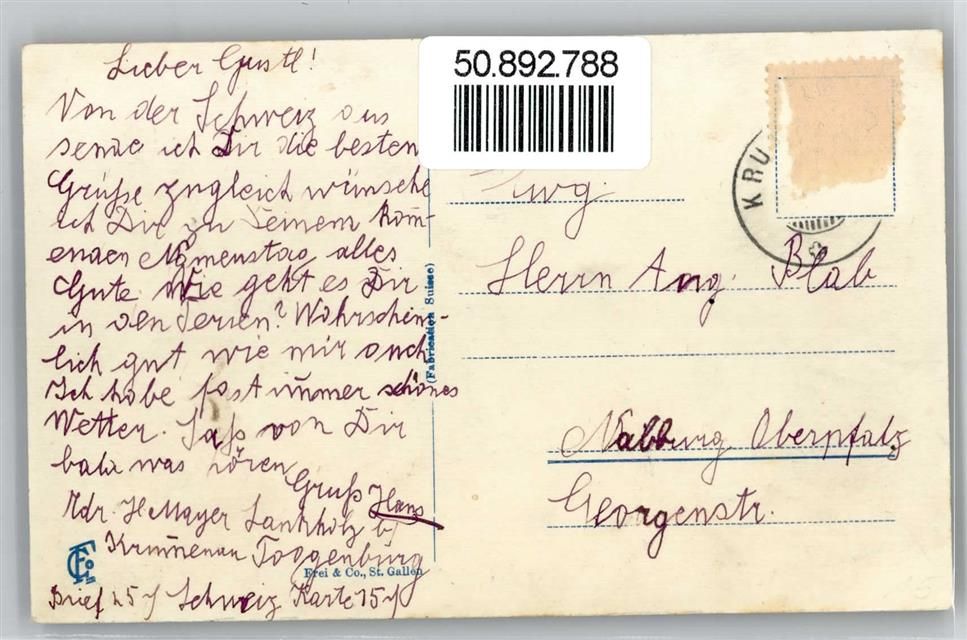 Lieber Gustl!
Von der Schweiz aus
sende ich Dir die besten
Grüße zugleich wünsche
ich Dir zu Deinem kom̄-
enden Namenstag alles
Gute. Wie geht es Dir
in den Ferien? Wahrschein-
lich gut wie mir auch
Ich habe fast im̄er schönes
Wetter. Laß von Dir
bald was hören
Gruß Hans
Adr. H. Mayer Lankholz b/
Krum̄enau Toggenburg
Brief 25 Schweiz Karte 15
50.892.788
KRU
Herrn Aug. Blab
Nabburg Oberpfalz
Georgenstr.
(Fabrication Suisse)
Frei & Co., St. Gallen